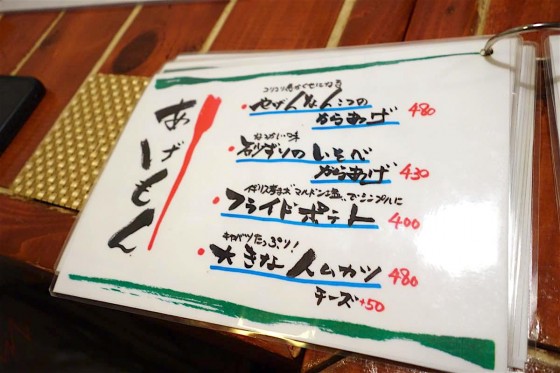 あげもん
コリコリ感がくせになる
やげんなんこつの
からあげ 480
なつかしい味
砂ずりのいそべ
からあげ 430
イギリス産まれ"マルドンの塩"でシンプルに
フライドポテト 400
キャベツたっぷり！
大きなハムカツ 480
チーズ +50